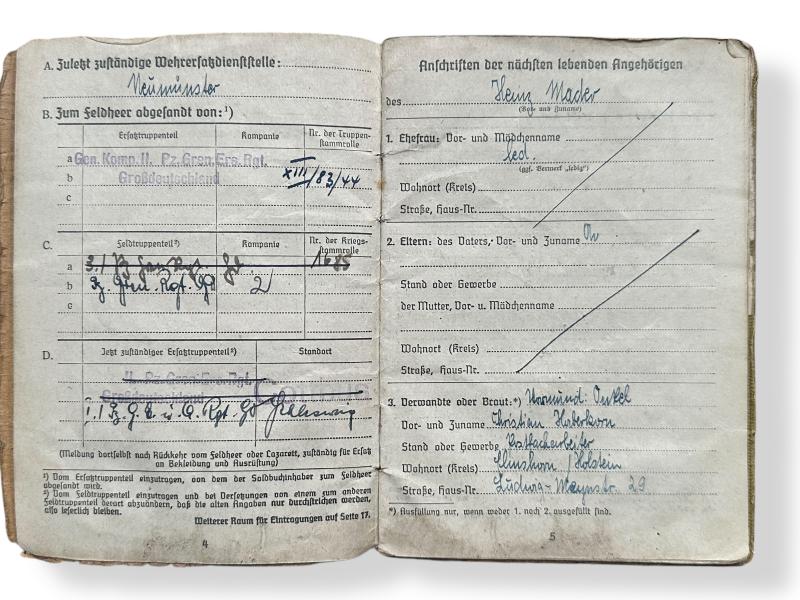 A. Zuletzt zuständige Wehrersatzdienststelle:
Neumünster
B. Zum Feldheer abgesandt von:¹)
Ersatztruppenteil Kompanie Nr. der Truppen-
stammrolle
a Gen. Komp. II. Pz. Gren. Ers. Rgt.
b Großdeutschland XIII/83/44
c
C. Feldtruppenteil²) Kompanie Nr. der Kriegs-
stammrolle
a 1685
b Pz. Gren. Rgt. 2
c
D. Jetzt zuständiger Ersatztruppenteil²) Standort
II. Pz. Gren. Ers. Rgt.
Großdeutschland Cottbus
Rgt. GD Schleswig
(Meldung dortselbst nach Rückkehr vom Feldheer oder Lazarett, zuständig für Ersatz
an Bekleidung und Ausrüstung)
¹) Vom Ersatztruppenteil einzutragen, von dem der Soldbuchinhaber zum Feldheer
abgesandt wird.
²) Vom Feldtruppenteil einzutragen und bei Versetzungen von einem zum anderen
Feldtruppenteil derart abzuändern, daß die alten Angaben nur durchstrichen werden,
also leserlich bleiben.
Weiterer Raum für Eintragungen auf Seite 17.
4
Anschriften der nächsten lebenden Angehörigen
des Heinz Mader
(Vor- und Zuname)
1. Ehefrau: Vor- und Mädchenname
led.
(ggf. Vermerk „ledig")
Wohnort (Kreis)
Straße, Haus-Nr.
2. Eltern: des Vaters, Vor- und Zuname
Stand oder Gewerbe
der Mutter, Vor- u. Mädchenname
Wohnort (Kreis)
Straße, Haus-Nr.
3. Verwandte oder Braut:*) Vormund: Onkel
Vor- und Zuname Christian Haberkorn
Stand oder Gewerbe
Wohnort (Kreis) Elmshorn / Holstein
Straße, Haus-Nr. Ludwig-Meynstr. 29
*) Ausfüllung nur, wenn weder 1. noch 2. ausgefüllt sind.
5